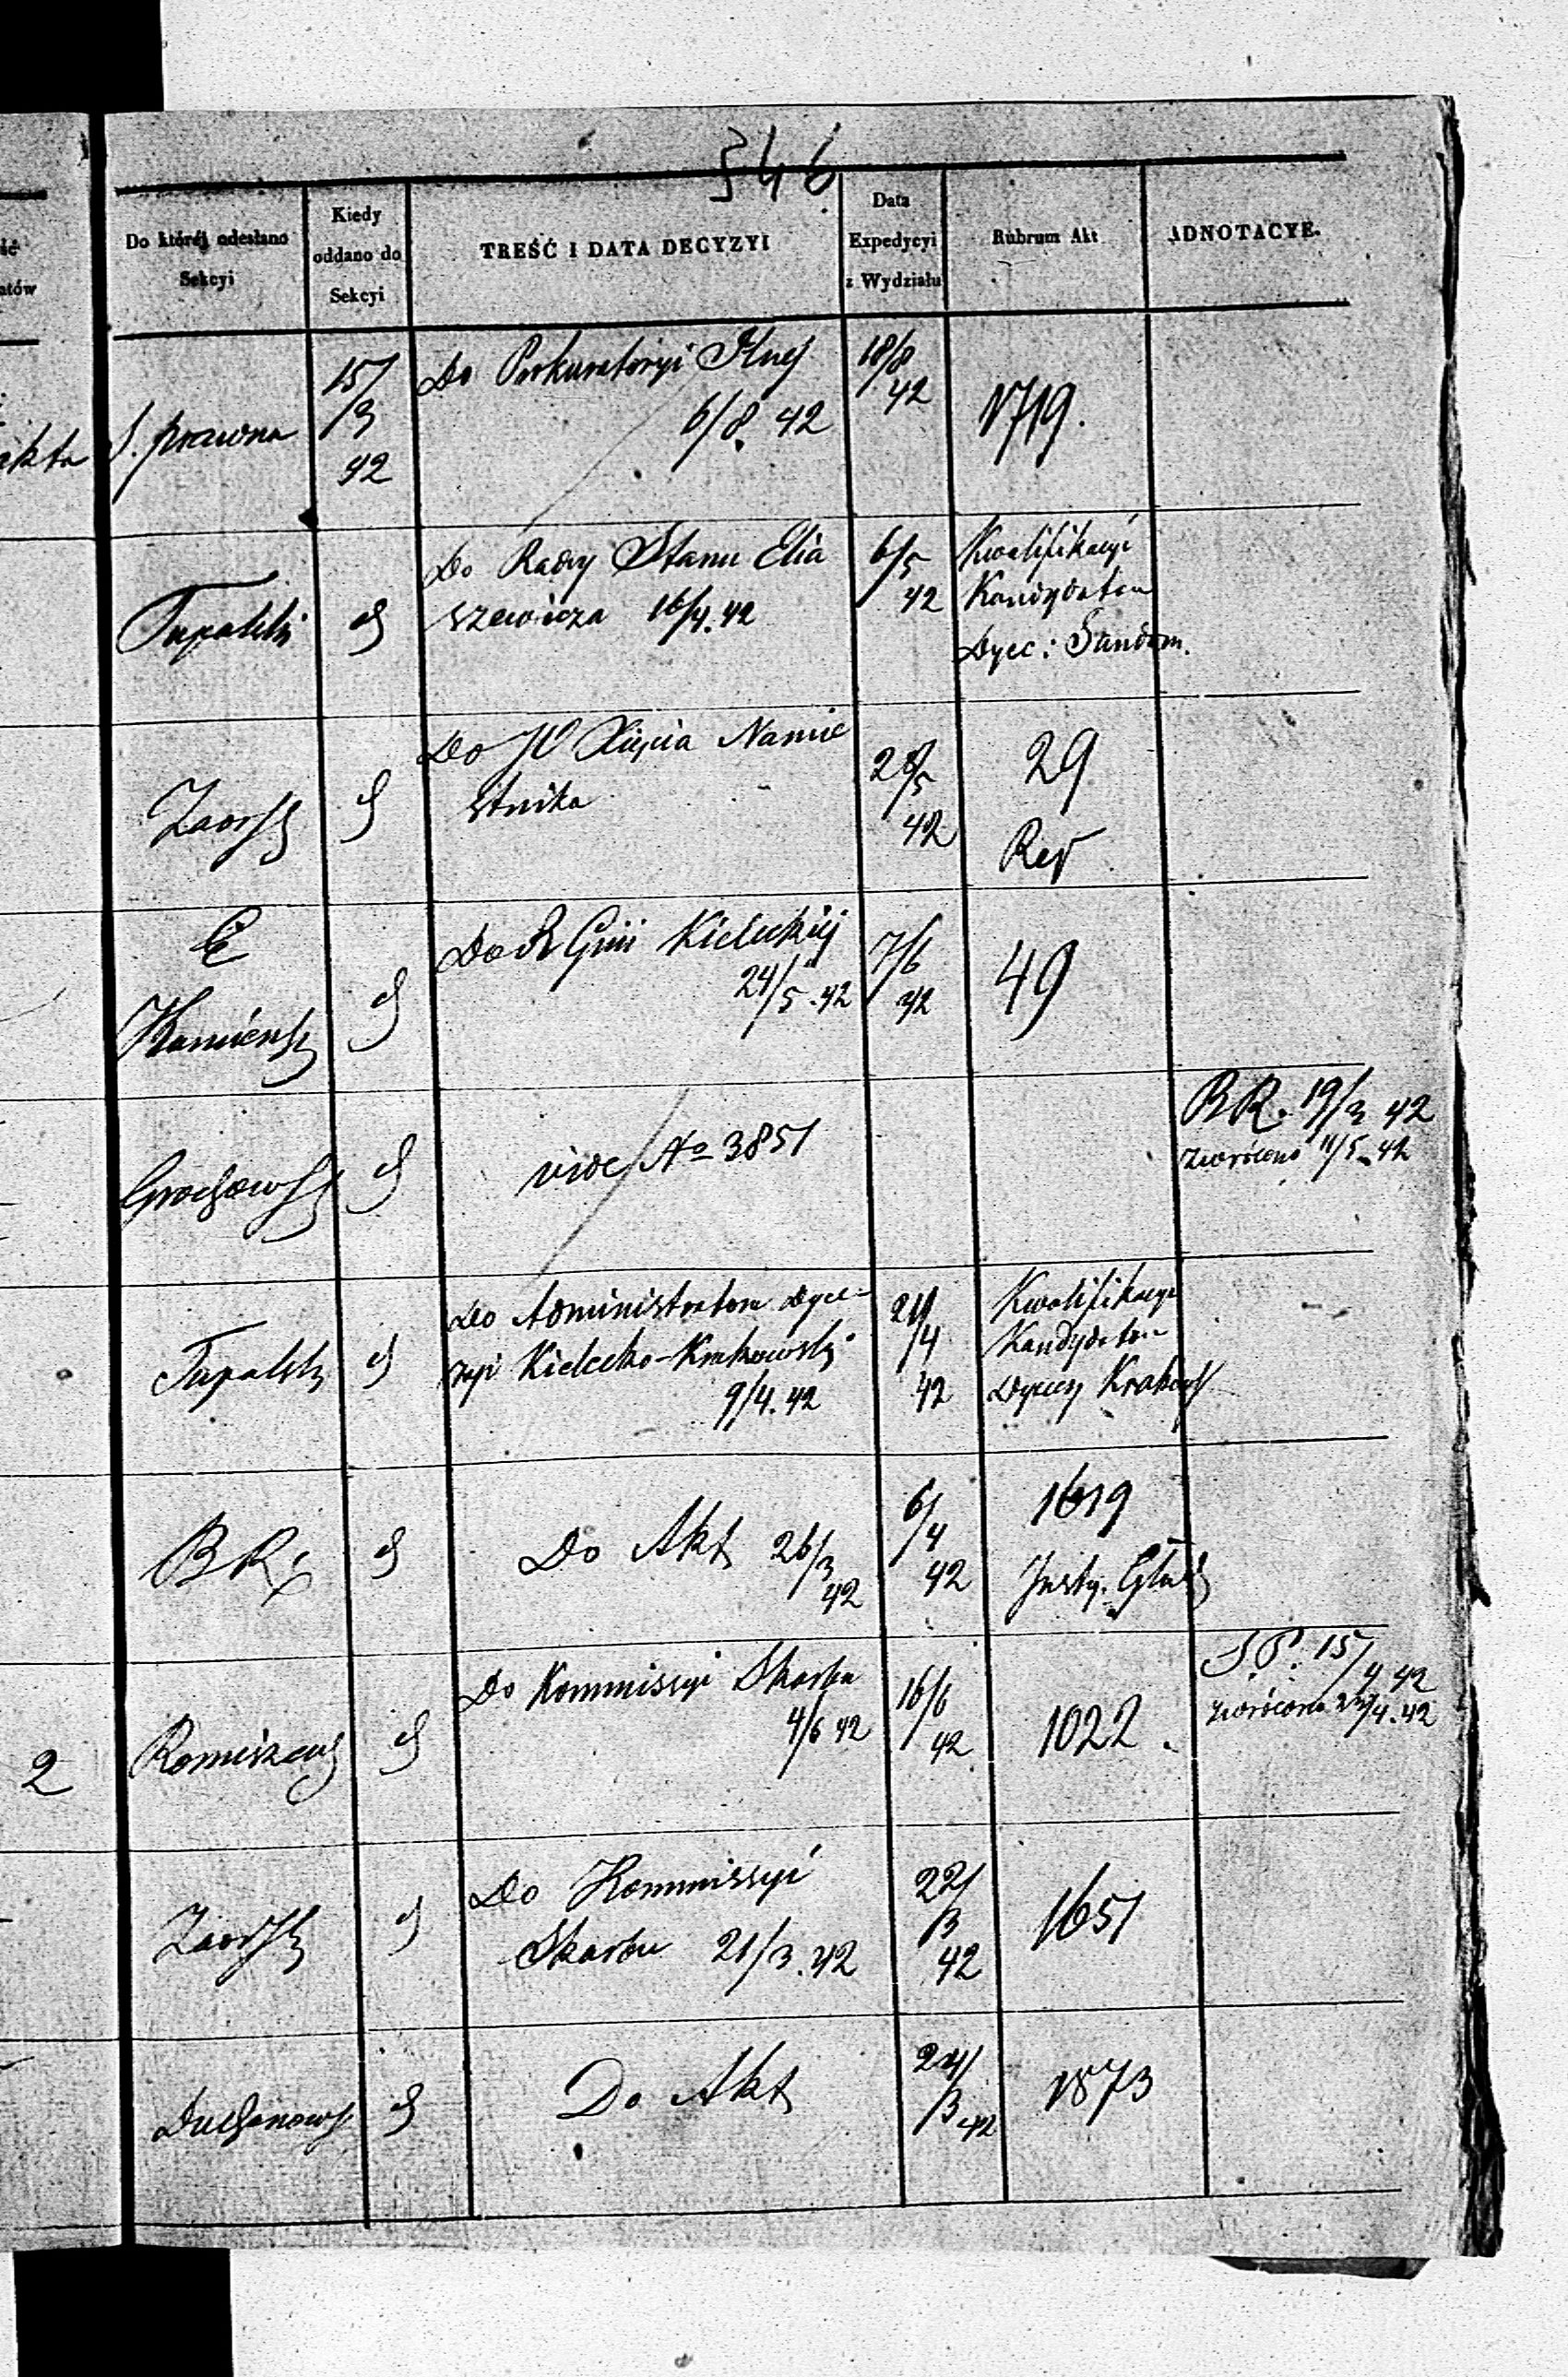 546
Do któréj odesłano
Sekcyi
Kiedy
oddano do
Sekcyi
TREŚĆ I DATA DECYZYI
Data
Expedycyi
z Wydziału
Rubrum Akt
ADNOTACYE.
S. prawna
15/
/3
42
Do Prokuratoryi
6/8. 42
18/8
42
1719.
Do Rady Stanu Elia
szewicza 16/4. 42
6/5
42
Kwalifikacyi
Kandydatów
Dyec: Sandom.
Do JO Xięcia Namie
stnika
28/5
42
29
Rep
Do R Gńii Kieleckiéj
24/5. 42
7/6
42
49
vide No 3851
BR. 19/3 42
zwrócono 11/5. 42
Do Administratora Dyec
ezyi Kielecko-Krakowskiéj
9/4. 42
21/
/4
42
Kwalifikacyi
Kandydatów
Dyecez Krakows
BR
Do Akt 26/3
42
6/
/4
42
1619
Do Kommissyi Skarbu
4/6 42
16/6
42
1022.
S.P. 15/4 42
zwrócono 23/4. 42
2
Do Kommissyi
Skarbu 21/3. 42
22/
/3
42
1651
Do Akt
24/
/3 42
1873